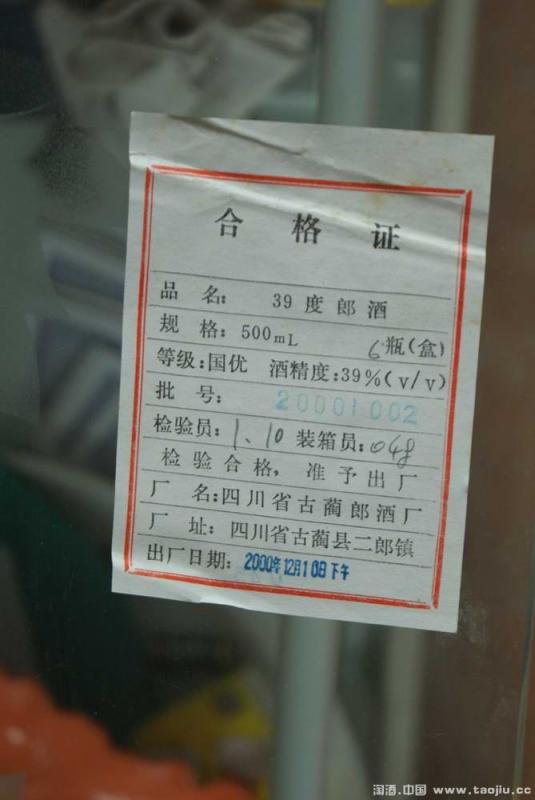 合格证
品名: 39度郎酒
规格: 500mL 6瓶(盒)
等级:国优 酒精度:39%(v/v)
批号: 20001002
检验员: 1.10 装箱员: 048
检验合格,准予出厂
厂名:四川省古蔺郎酒厂
厂址:四川省古蔺县二郎镇
出厂日期: 2000年12月10日下午
淘酒.中国 www.taojiu.cc